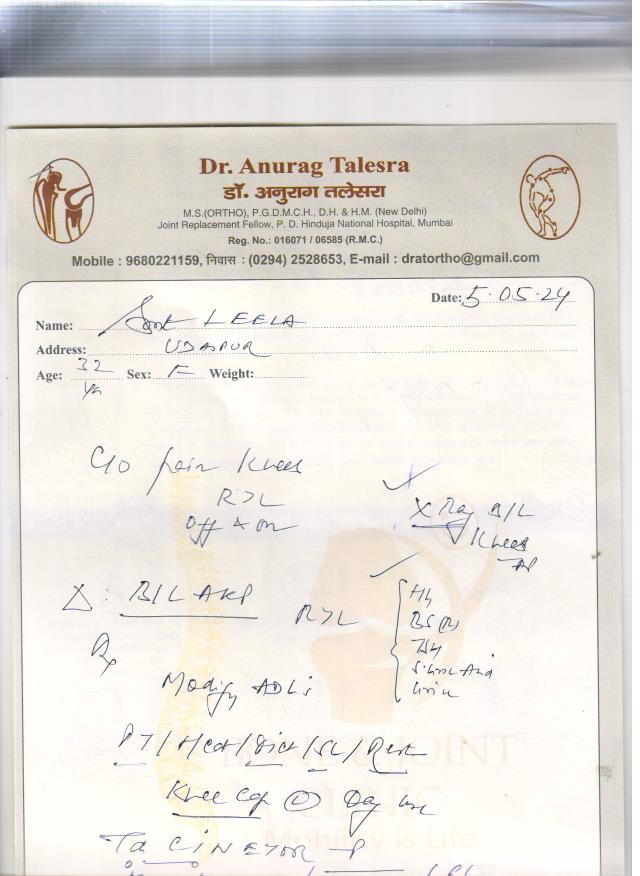 Dr. Anurag Talesra
डॉ. अनुराग तलेसरा
M.S.(ORTHO), P.G.D.M.C.H., D.H. & H.M. (New Delhi)
Joint Replacement Fellow, P. D. Hinduja National Hospital, Mumbai
Reg. No.: 016071 / 06585 (R.M.C.)
Mobile : 9680221159, निवास : (0294) 2528653, E-mail : dratortho@gmail.com
Date: 5.05.24
Name: Smt LEELA
Address: UDAIPUR
Age: 32 Yr Sex: F Weight:
C/o pain Knees
R>L
Off & on
X Ray B/L
Knees
AP
Δ: B/L AKP R>L
Hb
BS (R)
TSH
S. Uric Acid
Urine
Rx
Modify ADL's
PT/Heat/Diet/SL/Rest
Knee Cap Day use
BONE & JOINT
CLINIC
Mobility is Life